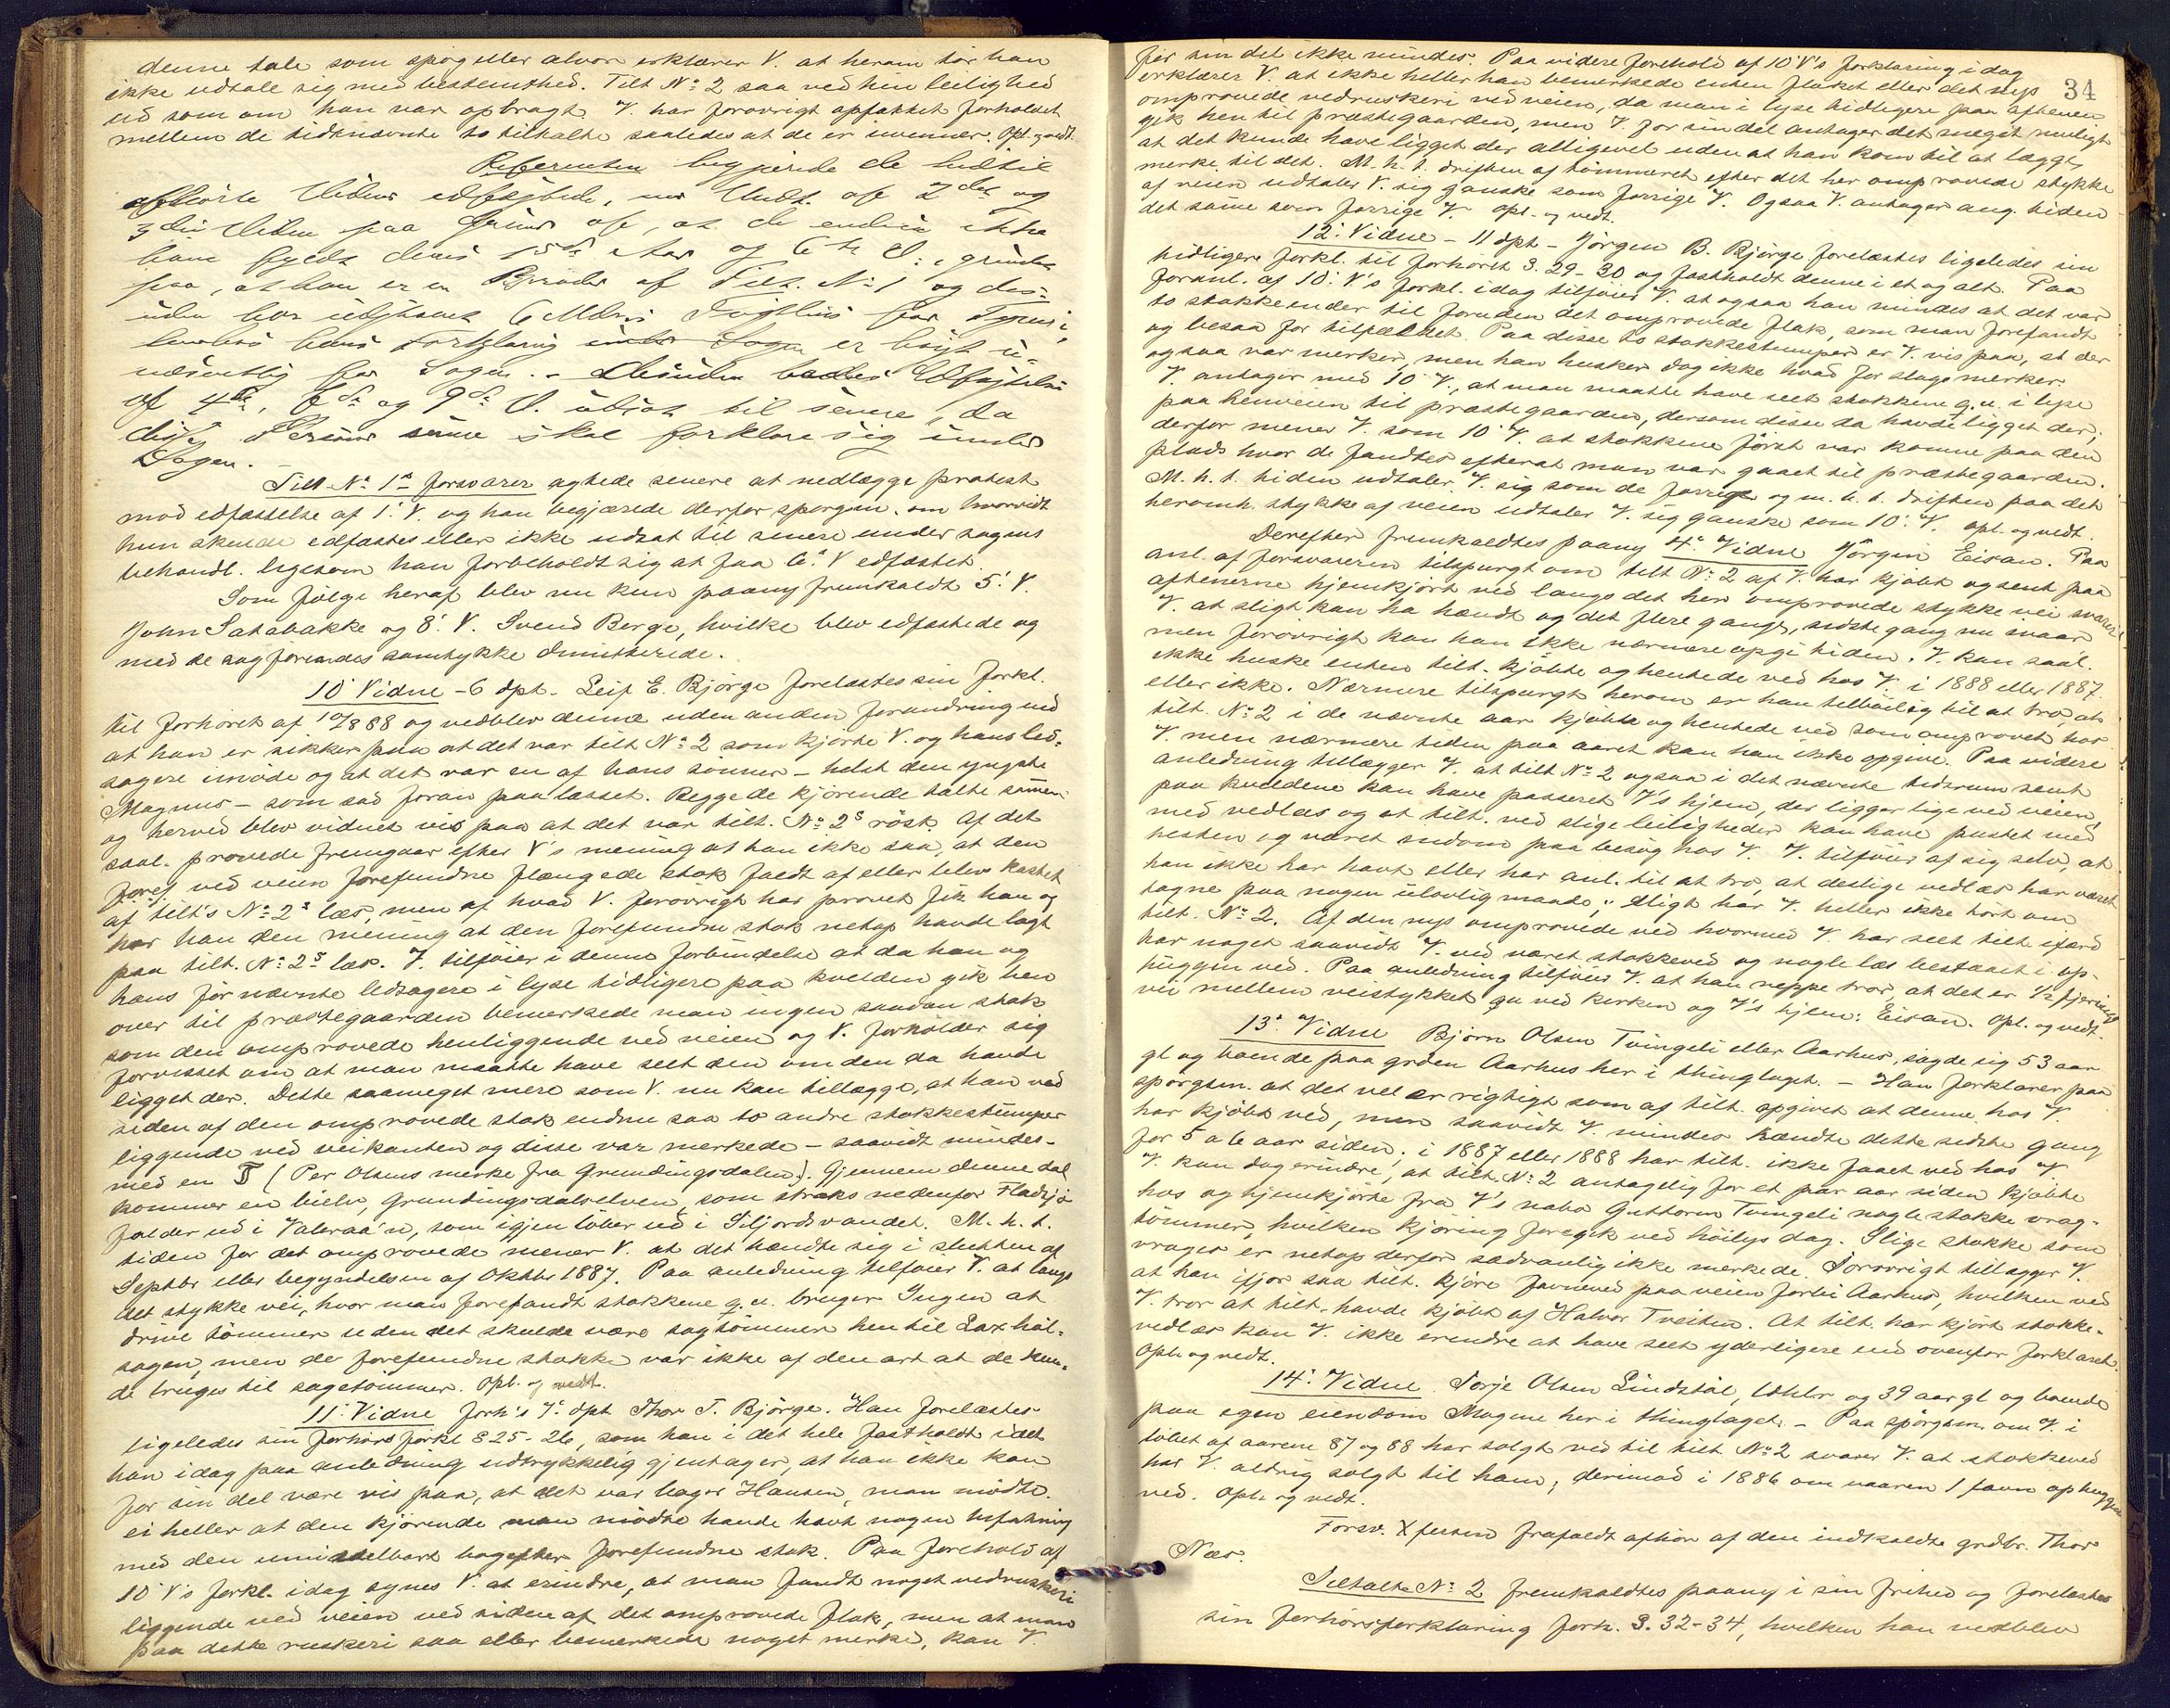 denne tale som spøg eller alvor erklærer V. at herom tør han
ikke udtale sig med bestemthed. Tilt No 2 saa ved hin leilighed
ud som om han var opbragt. V. har forøvrigt opfattet forholdet
mellem de tidtnævnte to tiltalte saaledes at de er uvenner. Opl. og vedt.
Referenten begjærede de hidtil
afhørte Vidner edfæstede, med Undt. af 2det og
3die Viden paa Grund af, at de endnu ikke
have fyldt deres 15de Aar og 6te V., grundet
paa, at han er en Broder af Tilt. No 1 og des-
uden har udstaaet 6 Mdrs Tugthus for Tyveri,
hvorhos hans Forklaring er høist u-
væsentlig for Sagen. – Desuden bedes Edfæstelsen
af 4de, 7de og 9de V. udsat til senere, da
disse Personer senere skal forklare sig under
Sagen. –
Tilt No 1s forsvarer agtede senere at nedlægge protest
mod edfæstelse af 1' V. og han begjærede derfor spørgsm. om hvorvidt
hun skulde edfæstes eller ikke udsat til senere under sagens
behandl. ligesom han forbeholdt sig at faa 6' V edfæstet.
Som følge heraf blev nu kun paany fremkaldt 5' V.
John Satabakke og 8' V. Svend Berge, hvilke blev edfæstede og
med de sagførendes samtykke dimitterede.
10' Vidne – 6 dpt. Leif E. Bjørge forelæstes sin forkl.
til forhøret af 10/8 88 og vedblev denne uden anden forandring end
at han er sikker paa at det var tilt No 2 som kjørte V. og hans led-
sagere imøde og at det var en af hans sønner – helst den yngste
Magnus – som sad foran paa læsset. Begge de kjørende talte sammen
og herved blev vidnet vis paa at det var tilt. No 2s røst. Af det
saal. provede fremgaar efter V's mening at han ikke saa, at den
forej ved veien forefundne flængede stok faldt af eller blev kastet
af tilt's No 2s læs, men af hvad V. forøvrigt har provet fik han og
har han den mening at den forefundne stok netop havde lagt
paa tilt. No 2s læs. V. tilføier i denne forbindelse at da han og
hans før nævnte ledsagere i lyse tidligere paa kvelden gik hen
over til præstegaarden bemerkede man ingen saadan stok
som den omprovede henliggende ved veien og V. forholder sig
forvisset om at man maatte have seet den om den da havde
ligget der. Dette saameget mere som V. nu kan tillægge, at han ved
siden af den omprovede stok endnu saa to andre stokkestumper
liggende ved veikanten og disse var merkede – saavidt mindes –
med en (Per Olsens merke fra Grundingsdalen). Gjennem denne dal
kommer en bielv, Grundingsdalselven, som straks nedenfor Fladsjø
falder ud i Valeraa'n, som igjen løber ud i Siljordsvandet. M. h. t.
tiden for det omprovede mener V. at det hændte sig i slutten af
Septbr eller begyndelsen af Oktbr 1887. Paa anledning tilføier V. at langs
det stykke vei, hvor man forefandt stokkene q. u. bruger Ingen at
drive tømmer uden det skulde være sagtømmer hen til Laxhøl-
sagen, men de forefundne stokke var ikke af den art at de kun-
de bruges til sagetømmer. Opl. og vedt.
11' Vidne forh's 7' dpt Thor T. Bjørge. Han forelæstes
ligeledes sin forhørsforkl S 25–26, som han i det hele fastholdt idet
han idag paa anledning udtrykkelig gjentager, at han ikke kan
for sin del være vis paa, at det var bager Hansen, man mødte.
ei heller at den kjørende man mødte havde havt nogen befatning
med den umiddelbart bagefter forefundne stok. Paa forehold af
10 V's forkl. idag synes V. at erindre, at man fandt noget vedruskeri
liggende ved veien ved siden af det omprovede flak, men at man
paa dette ruskeri saa eller bemerkede noget merke, kan V.
34
for sin del ikke mindes. Paa videre forehold af 10'V's forklaring idag
erklærer V. at ikke heller han bemerkede enten flaket eller det nys
omprovede vedruskeri ved veien, da man i lyse tidligere paa aftenen
gik hen til præstegaarden, men V. for sin del antager det meget muligt
at det kunde have ligget der alligevel uden at han kom til at lægge
merke til det. M. h. t. driften af tømmeret efter det her omprovede stykke
af veien udtaler V. sig ganske som forrige V. Ogsaa V. antager ang. tiden
det samme som forrige V. Opl. og vedt.
12' Vidne – 11 dpt – Jørgen B. Bjørge forelæstes ligeledes sin
tidligere forkl. til forhøret S. 29–30 og fastholdt denne i et og alt. Paa
foranl. af 10' V's forkl. idag tilføier V. at ogsaa han mindes at det var
to stokkeender til foruden det omprovede flak, som man forefandt
og besaa for tilfældet. Paa disse to stokkestumper er V. vis paa, at der
ogsaa var merker, men han husker dog ikke hvad for slags merker.
V. antager med 10 V., at man maatte have seet stokkene q. u. i lyse
paa henveien til præstegaarden, dersom disse da havde ligget der;
derfor mener V. som 10' V. at stokkene først var komne paa den
plads hvor de fandtes efterat man var gaaet til præstegaarden.
M. h. t. tiden udtaler V. sig som de forrige og m. h. t. driften paa det
heromh. stykke af veien udtaler V. sig ganske som 10' V. Opl. og vedt.
Derefter fremkaldtes paany 4' Vidne Jørgen Eisan. Paa
anl. af forsvareren tilspurgt om tilt No 2 af V. har kjøbt og sent paa
aftenerne hjemkjørt ved langs det her omprovede stykke vei svarer
V. at sligt kan ha hændt og det flere gange, sidste gang nu ivaar
men forøvrigt kan han ikke nærmere opgi tiden. V. kan saal.
ikke huske enten tilt. kjøbte og hentede ved hos V. i 1888 eller 1887
eller ikke. Nærmere tilspurgt herom er han tilbøielig til at tro, at
tilt. No 2 i de nævnte aar kjøbte og hentede ved som omprovet hos
V. men nærmere tiden paa aaret kan han ikke opgive. Paa videre
anledning tillægger V. at tilt No 2 ogsaa i det nævnte tidsrum sent
paa kveldene kan have passeret V's hjem, der ligger lige ved veien,
med vedlæs og at tilt. ved slige leiligheder kan have pustet med
hesten og været indom paa besøg hos V. V. tilføier af sig selv, at
han ikke har havt eller har anl. til at tro, at deslige vedlæs har været
tagne paa nogen ulovlig maade; sligt har V. heller ikke hørt om
tilt. No 2. Af den nys omprovede ved hvormed V har seet tilt ifærd
har noget saavidt V. ved været stokkeved og nogle læs bestaaet i op-
huggen ved. Paa anledning tilføier V. at han neppe tror, at det er 1/2 fjerings
vei mellem veistykket q u ved kirken og V's hjem: Eisan. Opl. og vedt.
13' Vidne Bjørn Olsen Tvingeli eller Aarhus, sagde sig 53 aar
gl og boende paa grden Aarhus her i thinglaget. – Han forklarer paa
spørgsm. at det vel er rigtigt som af tilt. opgivet at denne hos V.
har kjøbt ved, men saavidt V. mindes hændte dette sidste gang
for 5 a 6 aar siden; i 1887 eller 1888 har tilt. ikke faaet ved hos V.
V. kan dog erindre, at tilt. No 2 antagelig for et par aar siden kjøbte
hos og hjemkjørte fra V's nabo Guttorm Tvingeli nogle stokke vrag-
tømmer, hvilken kjøring foregik ved høilys dag. Slige stokke som
vrages er netop derfor sædvanlig ikke merkede. Forøvrigt tillægger V.
at han ifjor saa tilt. kjøre favneved paa veien forbi Aarhus, hvilken ved
V. tror at tilt. havde kjøbt af Halvor Tveiten. At tilt. har kjørt stokke-
vedlæs kan V. ikke erindre at have seet yderligere end ovenfor forklaret.
Opl. og vedt.
14' Vidne. Torje Olsen Lindstøl, Uhlbr og 39 aar gl og boende
paa egen eiendom Mogene her i thinglaget. – Paa spørgsm. om V. i
løbet af aarene 87 og 88 har solgt ved til tilt No 2 svarer V. at stokkeved
har V. aldrig solgt til ham; derimod i 1886 om vaaren 1 favn ophuggen
ved. Opl. og vedt.
Forsv. frafaldt afhør af den indkaldte grdbr. Thor
Næs.
Tiltalte No 2 fremkaldtes paany i sin frihed og forelæstes
sin forhørsforklaring forh. S. 32–34, hvilken han vedblev